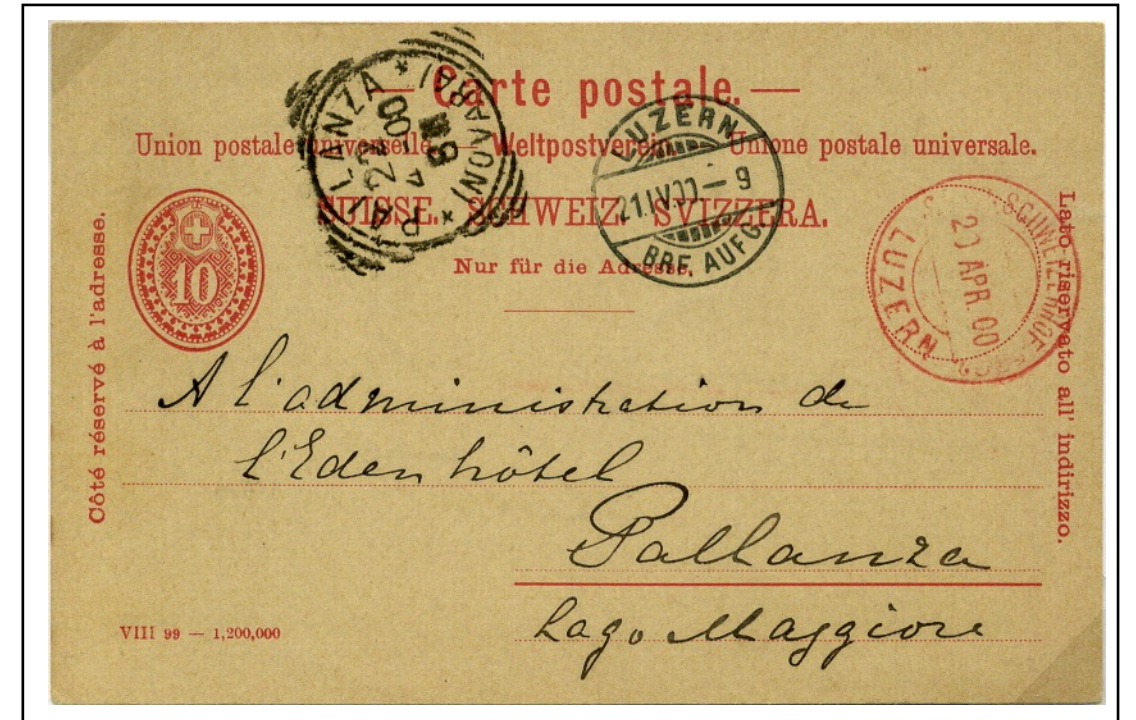 — Carte postale. —
Union postale universelle. — Weltpostverein. — Unione postale universale.
SUISSE. SCHWEIZ. SVIZZERA.
Nur für die Adresse.
Côté réservé à l'adresse.
10
PALLANZA * (NOVARA) *
22 4 00
8 M
LUZERN
21.IV.00 – 9
BRF. AUFG.
SCHWEIZERHOF
20 APR. 00
LUZERN
Lato riservato all' indirizzo.
A l'administration de
l'Eden hôtel
Pallanza
Lago Maggiore
VIII 99 — 1,200,000